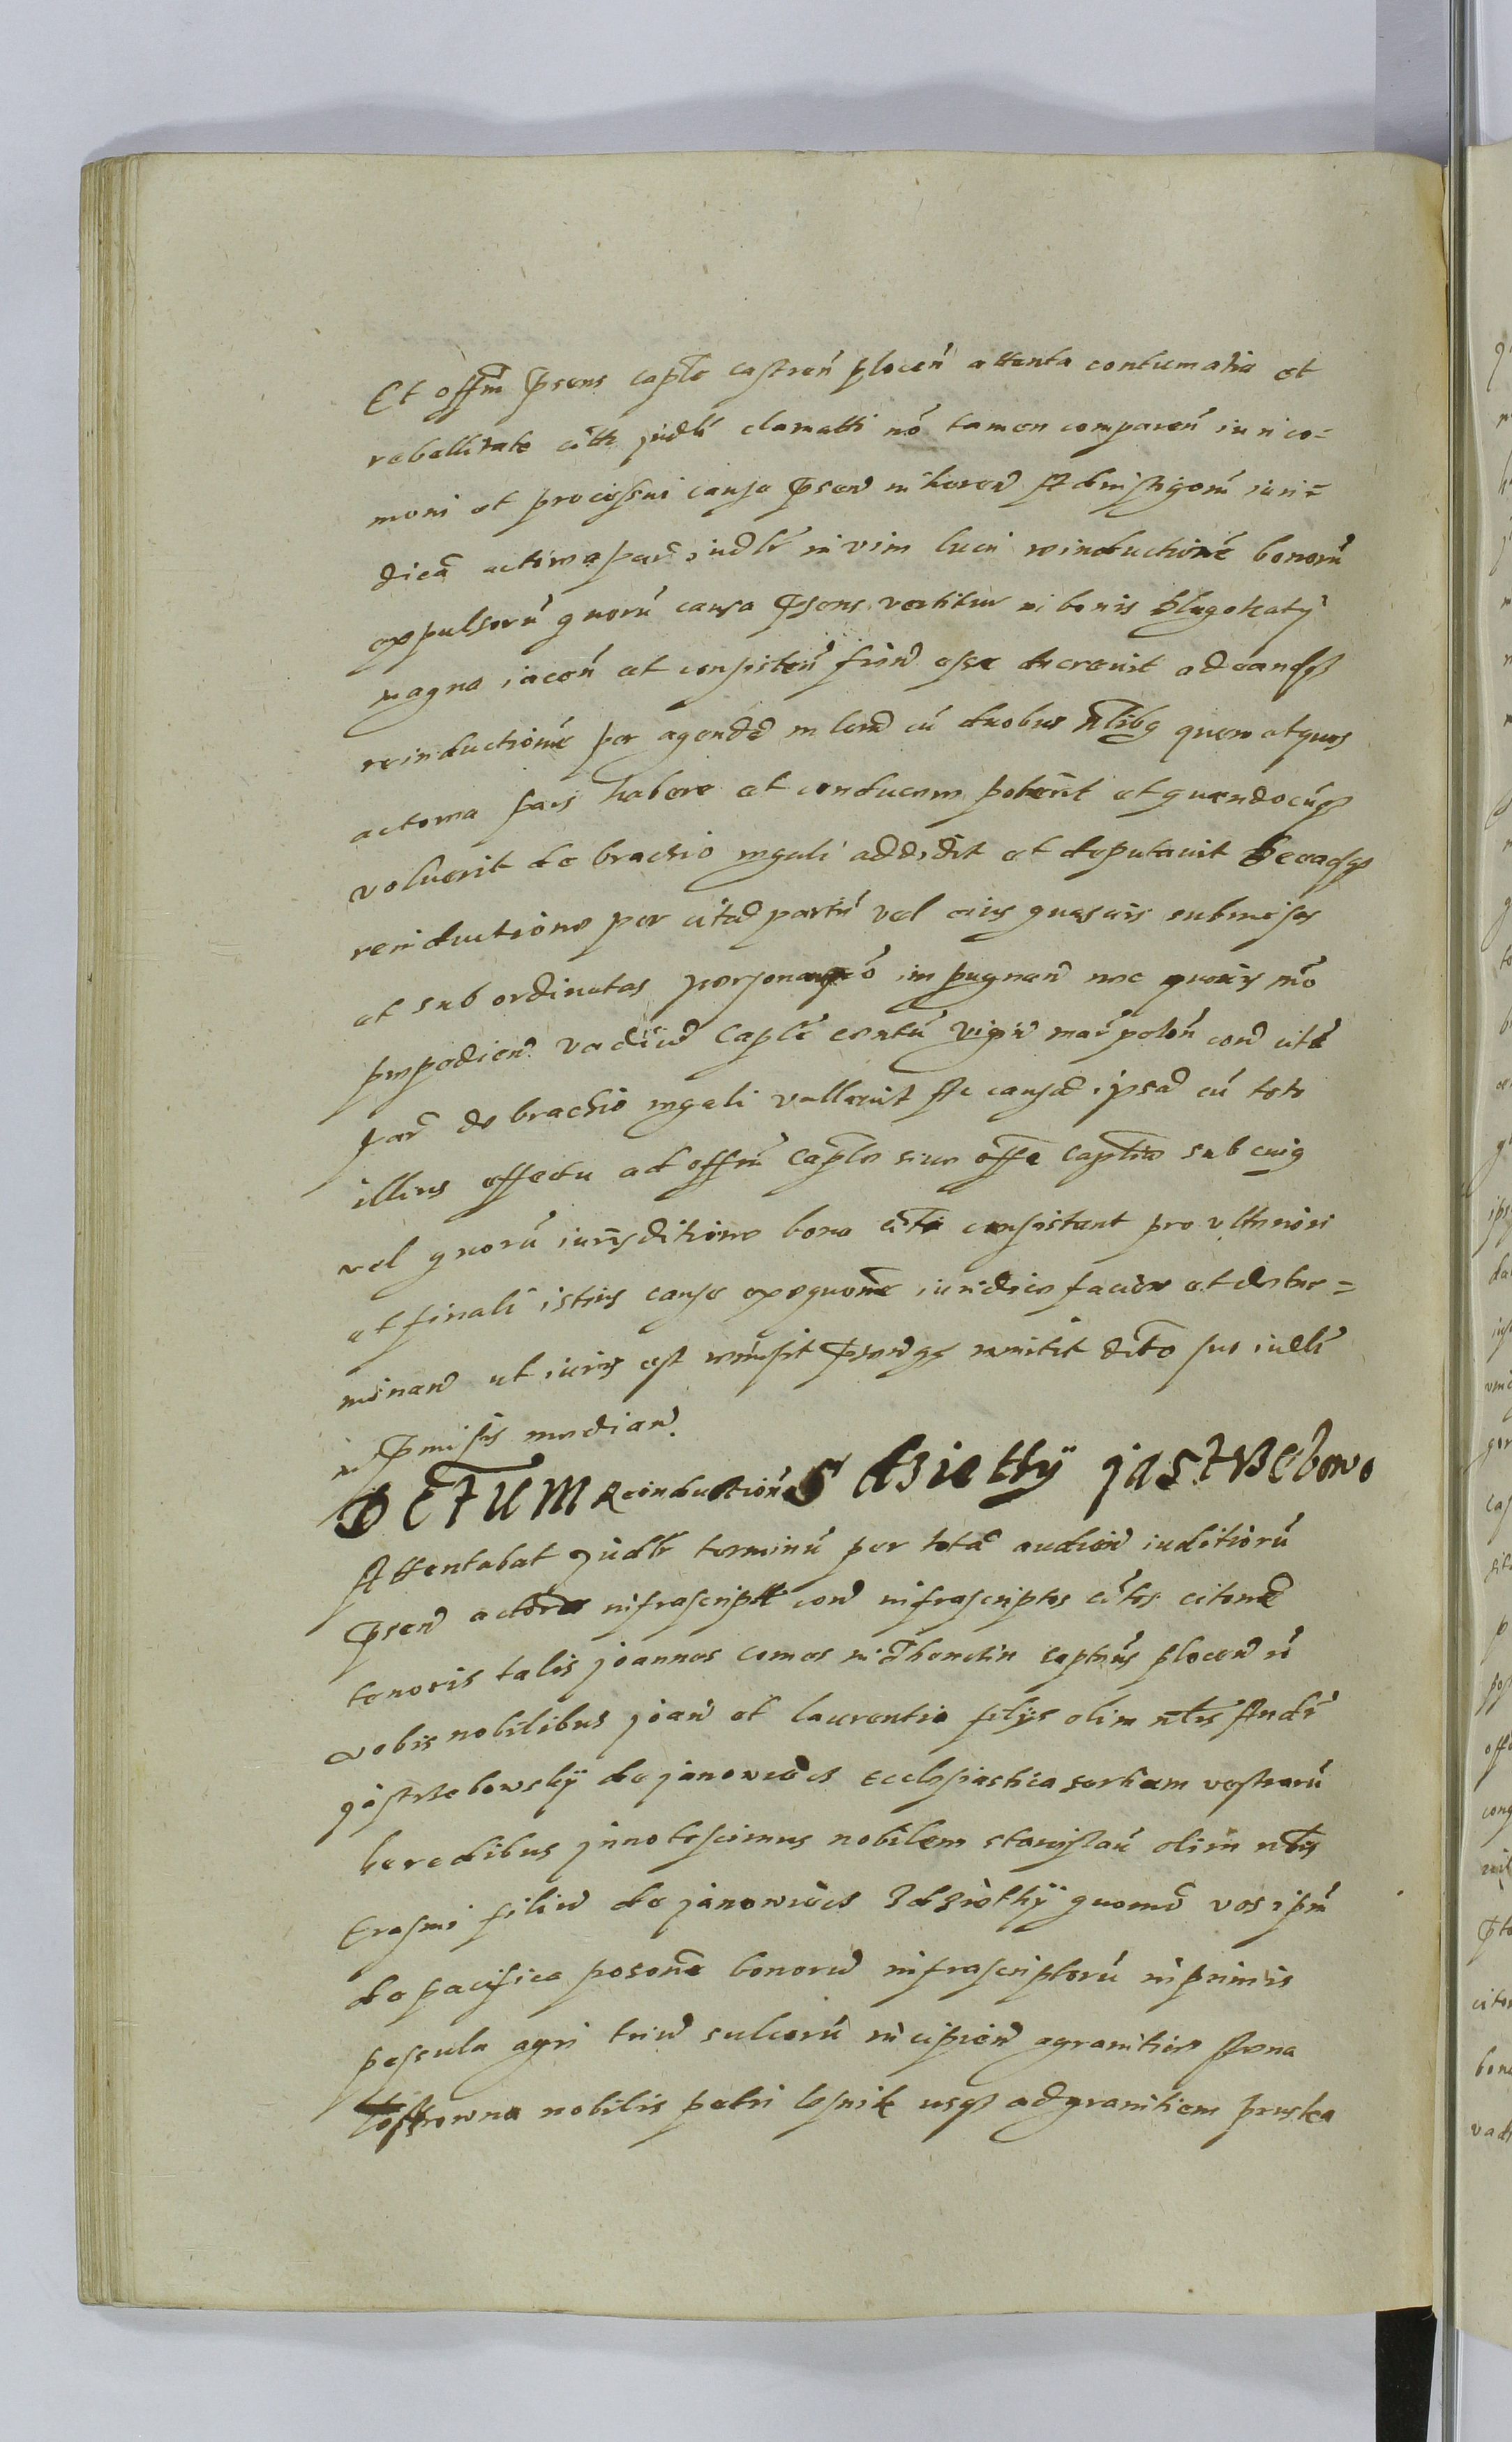 Et offm psens caple castren plocen attenta contumatia et
rebellitate citti judlr clamatti no tamen comparen iuri co=
moni et processui cause psen inheren Ad instigom iuri=
dica actorea par judlr in vim lucri reinductione bonoru
expulsoru quoru causa psens vertitur in bonis Dlugokaty
magna iacen et consisten fien esse decrevit ad eandq
reinductione per agenda cu duobus nlibq quem etquos
actorea pars habere et conducere poterit et quandocuq
voluerit de brachio regali addidit et deputavit Deeadq
reinductione per citta partem vel eius quasuis submissas
et subordinatas personas no impugnan nec quouis mo
impedien vadiu caple centu viginti mar polon con citt
par de brachio regali vallavit Ac causa ipsa cu toto
illius effectu ad offm caple siue offa captia sub cuiq
vel quoru iurisditione bona citti consistunt pro ulteriori
et finali istius cause exequone iuridice facien et deter=
minan ut iuris est remisit psenq remitit dcto suo iudli
in pmissis median.
DCTUM Reinductionis dzietthy jastrzebowo
Attentabat judlr terminu per tota audien iuditioru
psen actorea infrascriptt con infrascriptos cittos citone
tenoris talis joannes comes in captus plocen
vobis nobilibus joan et laurentio filijs olim nlis Andr
jastrzebowsky de janowiecz ecclesiastica sortium vestraru
heredibus innotescimus nobilem stanislau olim nlis
Erasmi filiu de janowiecz Zdzietthy quomo vos ipm
de pacifica posone bonoru infrascriptoru in primis
pessula agri triu sulcoru incipien agranitie
nobilis petri lesnik usq ad granitiem pruska